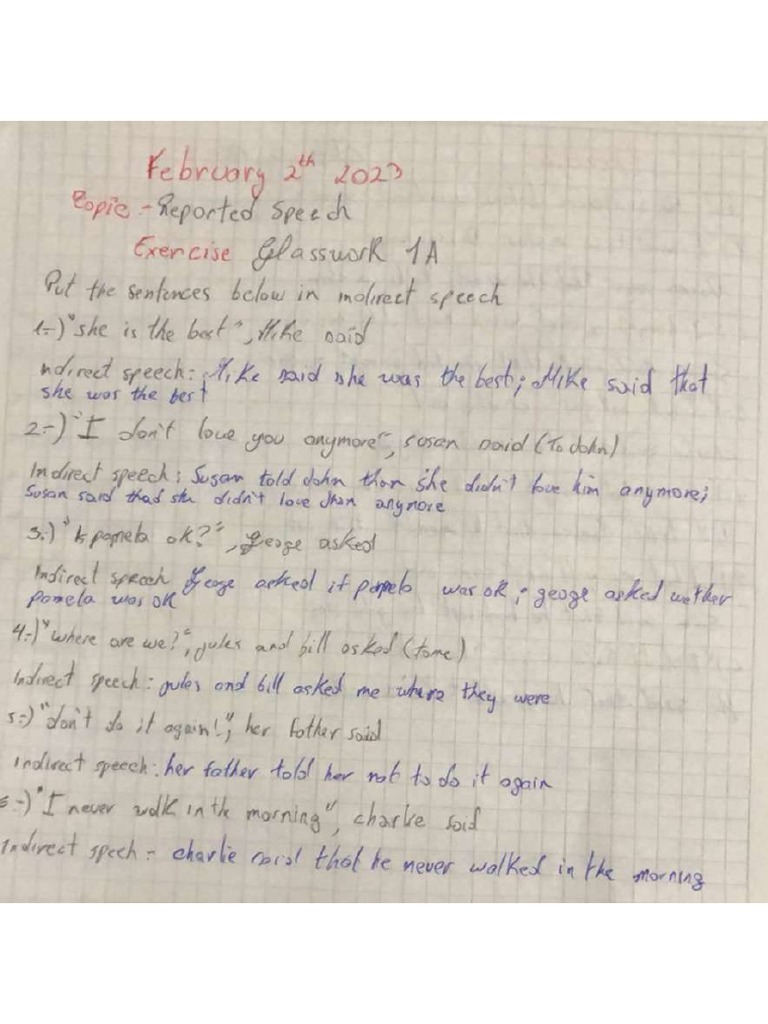 February 2th 2023
Topic - Reported Speech
Exercise Classwork 1A
Put the sentences below in indirect speech
1-) "she is the best", Mike said
Indirect speech: Mike said she was the best; Mike said that
she was the best
2-) "I don't love you anymore", susan said (To John)
Indirect speech: Susan told John than she didn't love him anymore;
Susan said thad she didn't love Jhon anymore
3-) "Is pamela ok?", geoge asked
Indirect speech geoge asked if pamela was ok; geoge asked wether
Pamela was ok
4-) "where are we?", jules and bill asked (to me)
Indirect speech: jules and bill asked me where they were
5-) "don't do it again!", her father said
indirect speech: her father told her not to do it again
6-) "I never walk in the morning", charlie said
Indirect spech - charlie said that he never walked in the morning